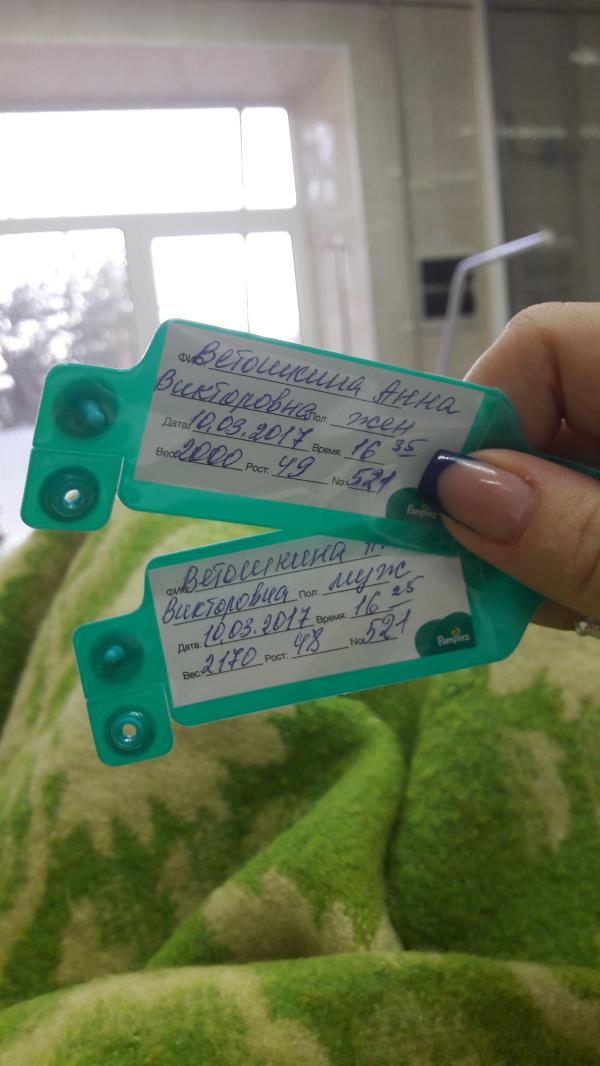 ФИО Ветошкина Анна
Викторовна Пол: жен
Дата: 10.03.2017 Время: 16 35
Вес: 2000 Рост: 49 No: 521
Pampers
ФИО Ветошкина
Викторовна Пол: муж
Дата: 10.03.2017 Время: 16 25
Вес: 2170 Рост: 48 No: 521
Pampers